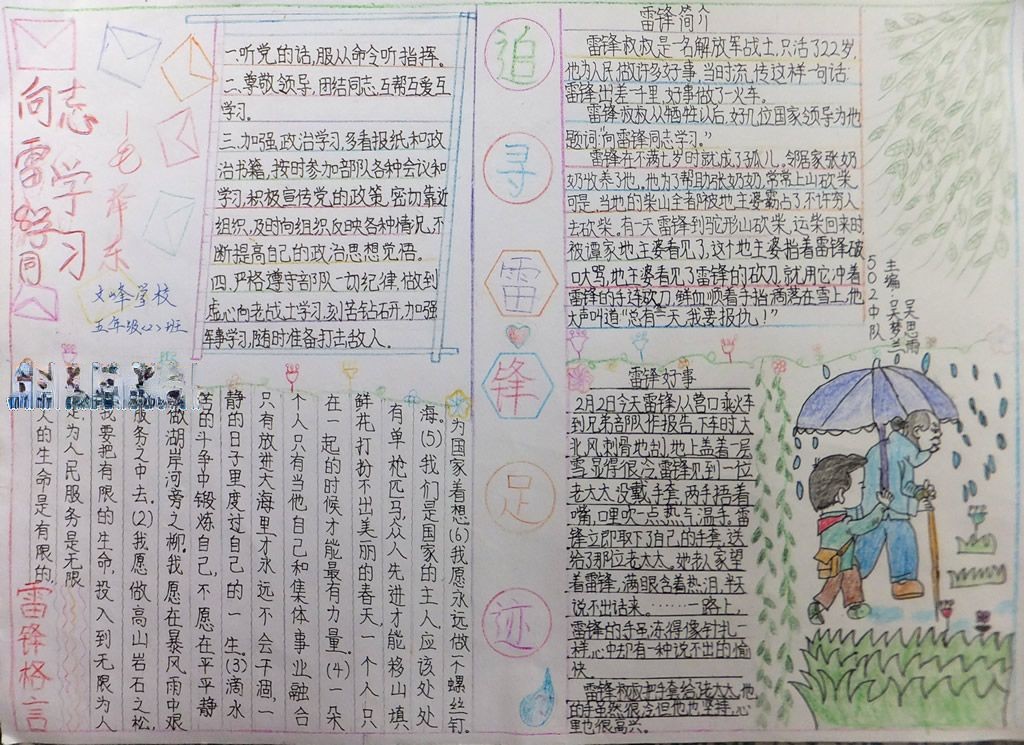 向
雷
锋
同
志
学
习
—毛泽东
文峰学校
五年级(2)班
一.听党的话,服从命令听指挥。
二.尊敬领导,团结同志,互帮互爱互
学习。
三.加强政治学习,多看报纸和政
治书籍,按时参加部队各种会议和
学习,积极宣传党的政策,密切靠近
组织,及时向组织反映各种情况,不
断提高自己的政治思想觉悟。
四.严格遵守部队一切纪律,做到
虚心向老战士学习,刻苦钻石开,加强
军事学习,随时准备打击敌人。
追
寻
雷
锋
足
迹
雷锋简介
雷锋叔叔是一名解放军战士,只活了22岁,
他为人民做许多好事,当时流传这样一句话:
雷锋出差一千里,好事做了一火车。
雷锋叔叔从牺牲以后,好几位国家领导为他
题词:“向雷锋同志学习。”
雷锋在不满七岁时就成了孤儿,邻居家张奶
奶收养了他。他为了帮助张奶奶,常常上山砍柴,
可是,当地的柴山全者阝被地主婆霸占了不许穷人
去砍柴。有一天,雷锋到蛇形山砍柴,运柴回来时,
被谭家地主婆看见了,这个地主婆指着雷锋破
口大骂,地主婆看见了雷锋的砍刀,就用它冲着
雷锋的手连砍刀,鲜血顺着手指滴落在雪上,他
大声叫道“总有一天,我要报仇!”
502中队
主编:吴梦兰
吴思雨
雷锋格言
人的生命是有限的,
是为人民服务是无限
我要把有限的生命,投入到无限为人
服务之中去.(2)我愿做高山岩石之松,
做湖岸河旁之柳.我愿在暴风雨中艰
苦的斗争中锻炼自己,不愿在平平静
静的日子里度过自己的一生.(3)滴水
只有放进大海里才永远不会干涸,一
个人只有当他自己和集体事业融合
在一起的时候才能最有力量.(4)一朵
鲜花打扮不出美丽的春天,一个人只
有单枪匹马,众人先进才能移山填
海.(5)我们是国家的主人,应该处处
为国家着想.(6)我愿永远做一个螺丝钉.
雷锋好事
2月2日今天雷锋从营口乘火车
到兄弟部队作报告,下车时,大
北风刺骨地刮,地上盖着一层
雪,显得很冷,雷锋见到一位
老太太没戴手套,两手捂着
嘴,口里吹一点热气温手,雷
锋立即取下了自己的手套,送
给了那位老太太。她老人家望
着雷锋,满眼含着热泪,半天
说不出话来。……一路上,
雷锋的手虽冻得像针扎一
样,心中却有一种说不出的愉
快。
雷锋叔叔把手套给了老太太,他
的手虽然很冷,但他也坚持,心
里也很高兴。